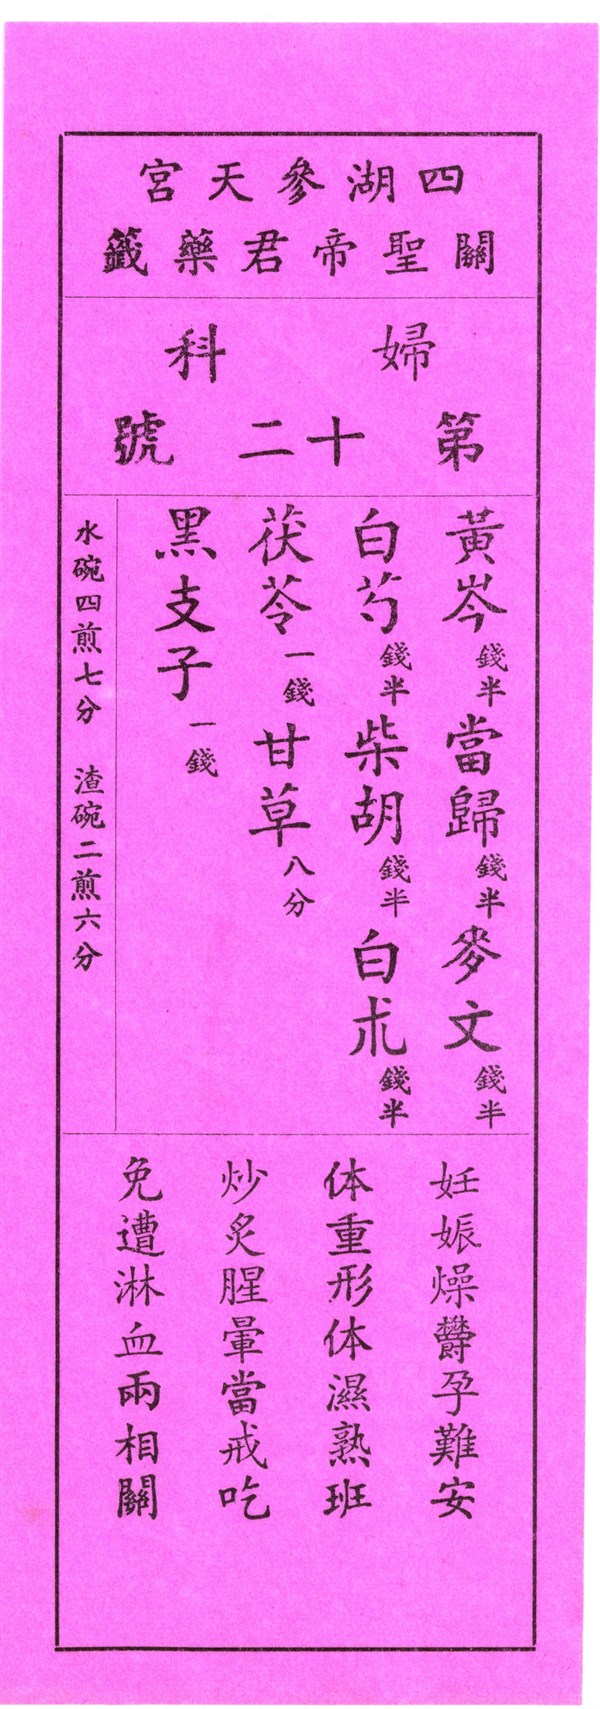 四湖參天宮
關聖帝君藥籤
婦科
第十二號
黃岑錢半當歸錢半麥文錢半
白芍錢半柴胡錢半白朮錢半
茯苓一錢甘草八分
黑支子一錢
水碗四煎七分 渣碗二煎六分
妊娠燥欝孕難安
体重形体濕熟班
炒炙腥暈當戒吃
免遭淋血兩相關